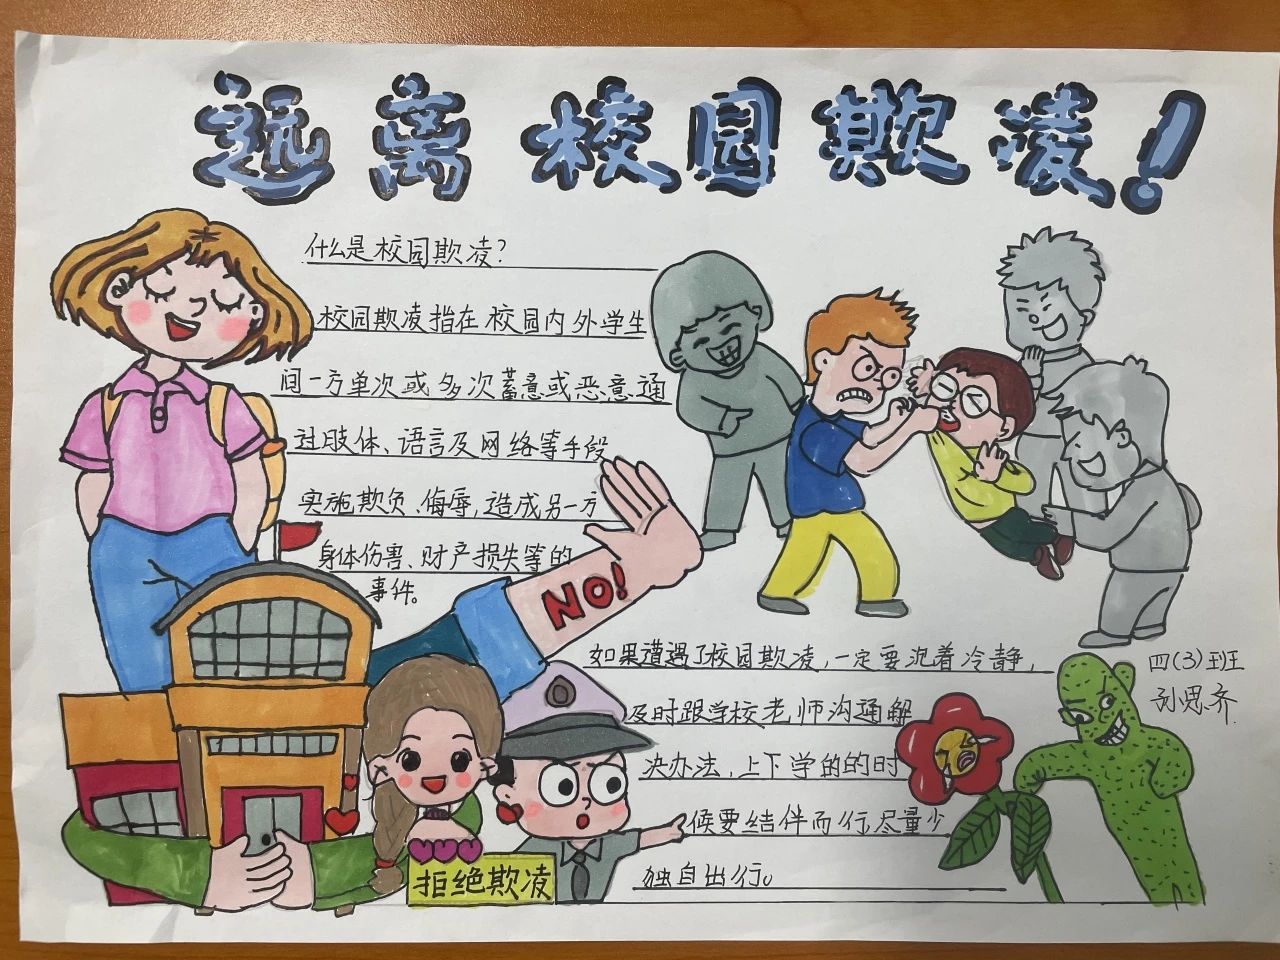 远离校园欺凌！
什么是校园欺凌？
校园欺凌指在校园内外学生
间一方单次或多次蓄意或恶意通
过肢体、语言及网络等手段
实施欺负、侮辱，造成另一方
身体伤害、财产损失等的
事件。
NO!
如果遭遇了校园欺凌，一定要沉着冷静，
及时跟学校老师沟通解
决办法，上下学的的时
候要结伴而行，尽量少
独自出行。
四(3)班
孙思齐
拒绝欺凌